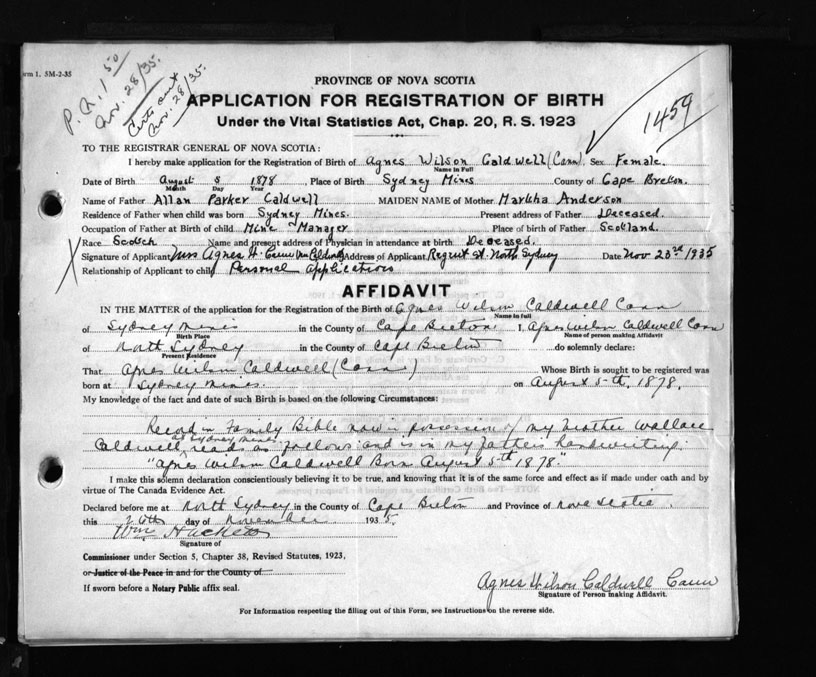 orm 1. 5M-2-35
P. A. 1 50
Nov. 28/35.
Certs out
Nov. 28/35.
1459
PROVINCE OF NOVA SCOTIA
APPLICATION FOR REGISTRATION OF BIRTH
Under the Vital Statistics Act, Chap. 20, R. S. 1923
TO THE REGISTRAR GENERAL OF NOVA SCOTIA:
I hereby make application for the Registration of Birth of Agnes Wilson Caldwell (Cann). Sex Female.
Name in Full
Date of Birth August 5 1878, Place of Birth Sydney Mines County of Cape Breton.
Month Day Year
Name of Father Allan Parker Caldwell MAIDEN NAME of Mother Martha Anderson
Residence of Father when child was born Sydney Mines. Present address of Father Deceased.
Occupation of Father at Birth of child Mine Manager Place of birth of Father Scotland.
Race Scotch Name and present address of Physician in attendance at birth Deceased.
Signature of Applicant Mrs Agnes W. Cann (nee Caldwell) Address of Applicant Regent St. North Sydney Date Nov 23rd 1935
Relationship of Applicant to child Personal Application
AFFIDAVIT
IN THE MATTER of the application for the Registration of the Birth of Agnes Wilson Caldwell Cann
Name in full
of Sydney Mines in the County of Cape Breton I, Agnes Wilson Caldwell Cann
Birth Place Name of person making Affidavit
of North Sydney in the County of Cape Breton do solemnly declare:
Present Residence
That Agnes Wilson Caldwell (Cann) Whose Birth is sought to be registered was
born at Sydney Mines. on August 5th, 1878.
My knowledge of the fact and date of such Birth is based on the following Circumstances:
Record in Family Bible now in possession of my brother Wallace
at Sydney Mines
Caldwell, reads as follows and is in my father's handwriting.
"Agnes Wilson Caldwell Born August 5th 1878"
I make this solemn declaration conscientiously believing it to be true, and knowing that it is of the same force and effect as if made under oath and by
virtue of The Canada Evidence Act.
Declared before me at North Sydney in the County of Cape Breton and Province of Nova Scotia.
this 26th day of November 1935.
Wm. Hackett
Signature of
Commissioner under Section 5, Chapter 38, Revised Statutes, 1923,
or Justice of the Peace in and for the County of
If sworn before a Notary Public affix seal.
Agnes Wilson Caldwell Cann
Signature of Person making Affidavit.
For Information respecting the filling out of this Form, see Instructions on the reverse side.